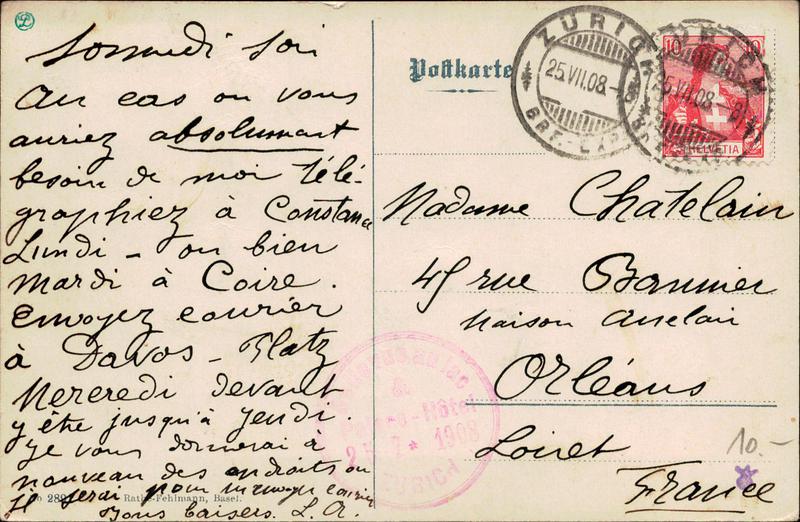 Samedi soir
Au cas ou vous
auriez absolumant
besoin de moi télé-
graphiez à Constance
Lundi - ou bien
Mardi à Coire.
Envoyez courier
à Davos-Platz
Mercredi devant
y être jusqu'à Jeudi.
Je vous donnerai à
nouveau des endroits ou
il serai pour m'envoyer courrier
Bons baisers. L. A.
No 289
Rathe-Fehlmann, Basel.
Postkarte
ZÜRICH
25.VII.08.-
BRF.
ZÜRICH
25.VII.08
10 10
HELVETIA
Madame Chatelain
45 rue Bannier
Maison
Orléans
Loiret
France
au lac
-Hôtel
25 7* 1908
ZURICH
10.-